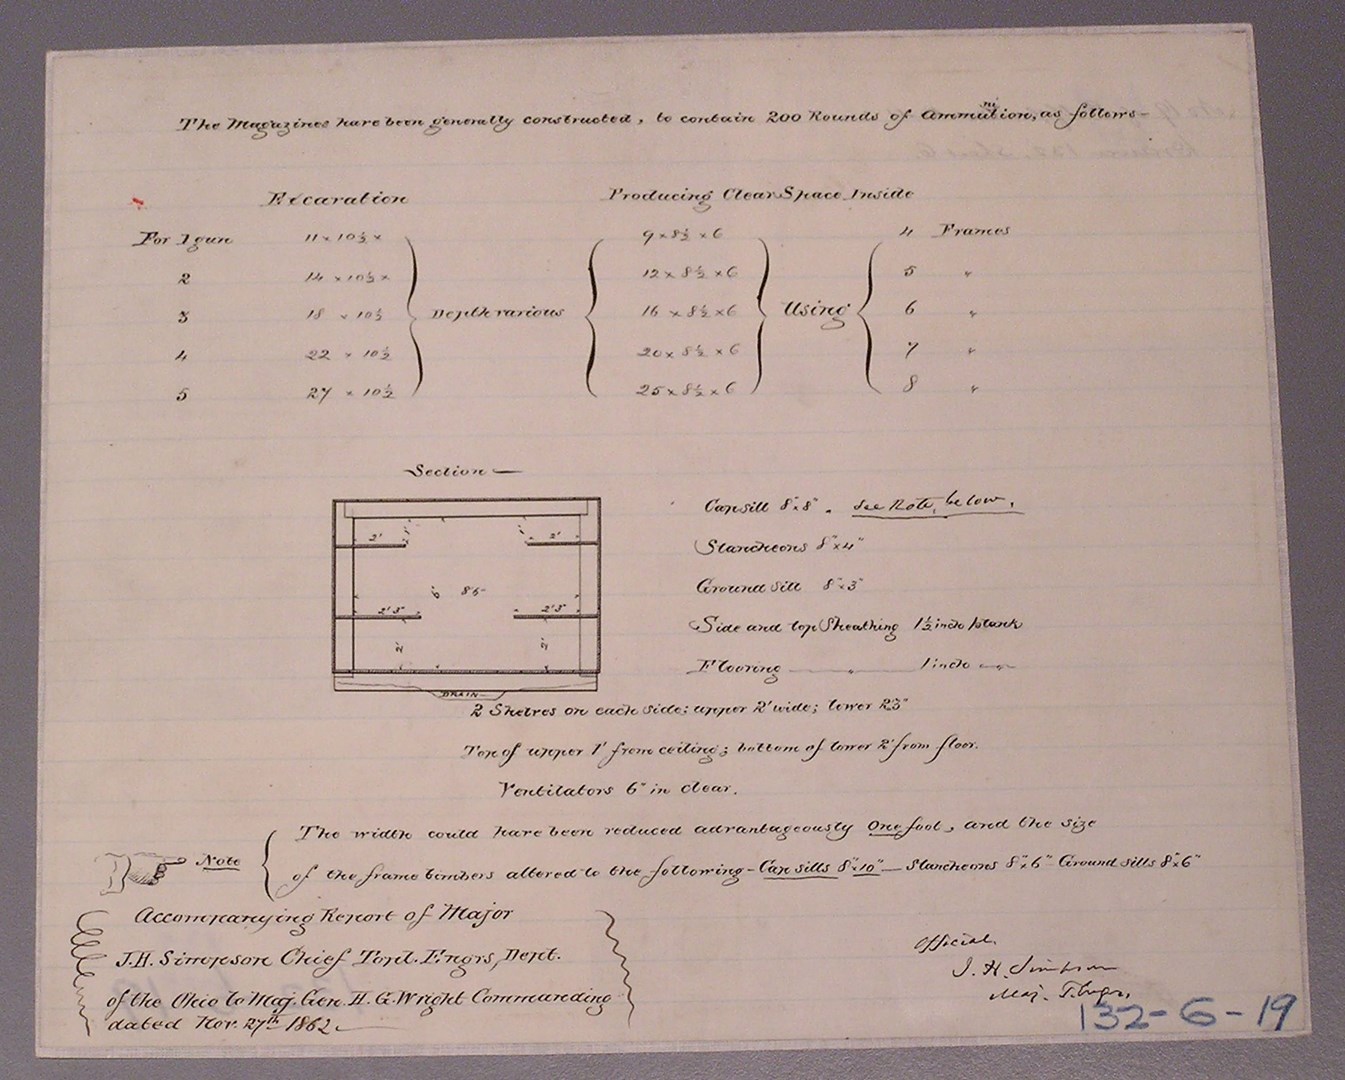 The Magazines have been generally constructed, to contain 200 Rounds of Ammunition, as follows—
Excavation Producing Clear Space Inside
For 1 gun 11 x 10½ x 9 x 8½ x 6 4 Frames
2 14 x 10½ x 12 x 8½ x 6 5 "
3 18 x 10½ Depth various 16 x 8½ x 6 Using 6 "
4 22 x 10½ 20 x 8½ x 6 7 "
5 27 x 10½ 25 x 8½ x 6 8 "
Section —
Cap sill 8"x8". See Note, below.
Stancheons 8"x4"
Ground Sill 8"x3"
Side and top Sheathing 1½ inch plank
Flooring " 1 inch "
2' 1' 1' 2'
6' 8'6"
2'3" 2'3"
2' 2'
DRAIN
2 Shelves on each side; upper 2' wide; lower 2'3"
Top of upper 1' from ceiling; bottom of lower 2' from floor.
Ventilators 6" in clear.
Note The width could have been reduced advantageously One foot, and the size
of the frame timbers altered to the following - Cap sills 8"x10" — Stancheons 8"x6" Ground sills 8"x6"
Accompanying Report of Major
J.H. Simpson Chief Topl. Engrs, Dept.
of the Ohio to Maj. Gen. H. G. Wright Commanding
dated Nov. 27th 1862.
Official.
J. H. Simpson
Maj. T. Engrs,
132-6-19